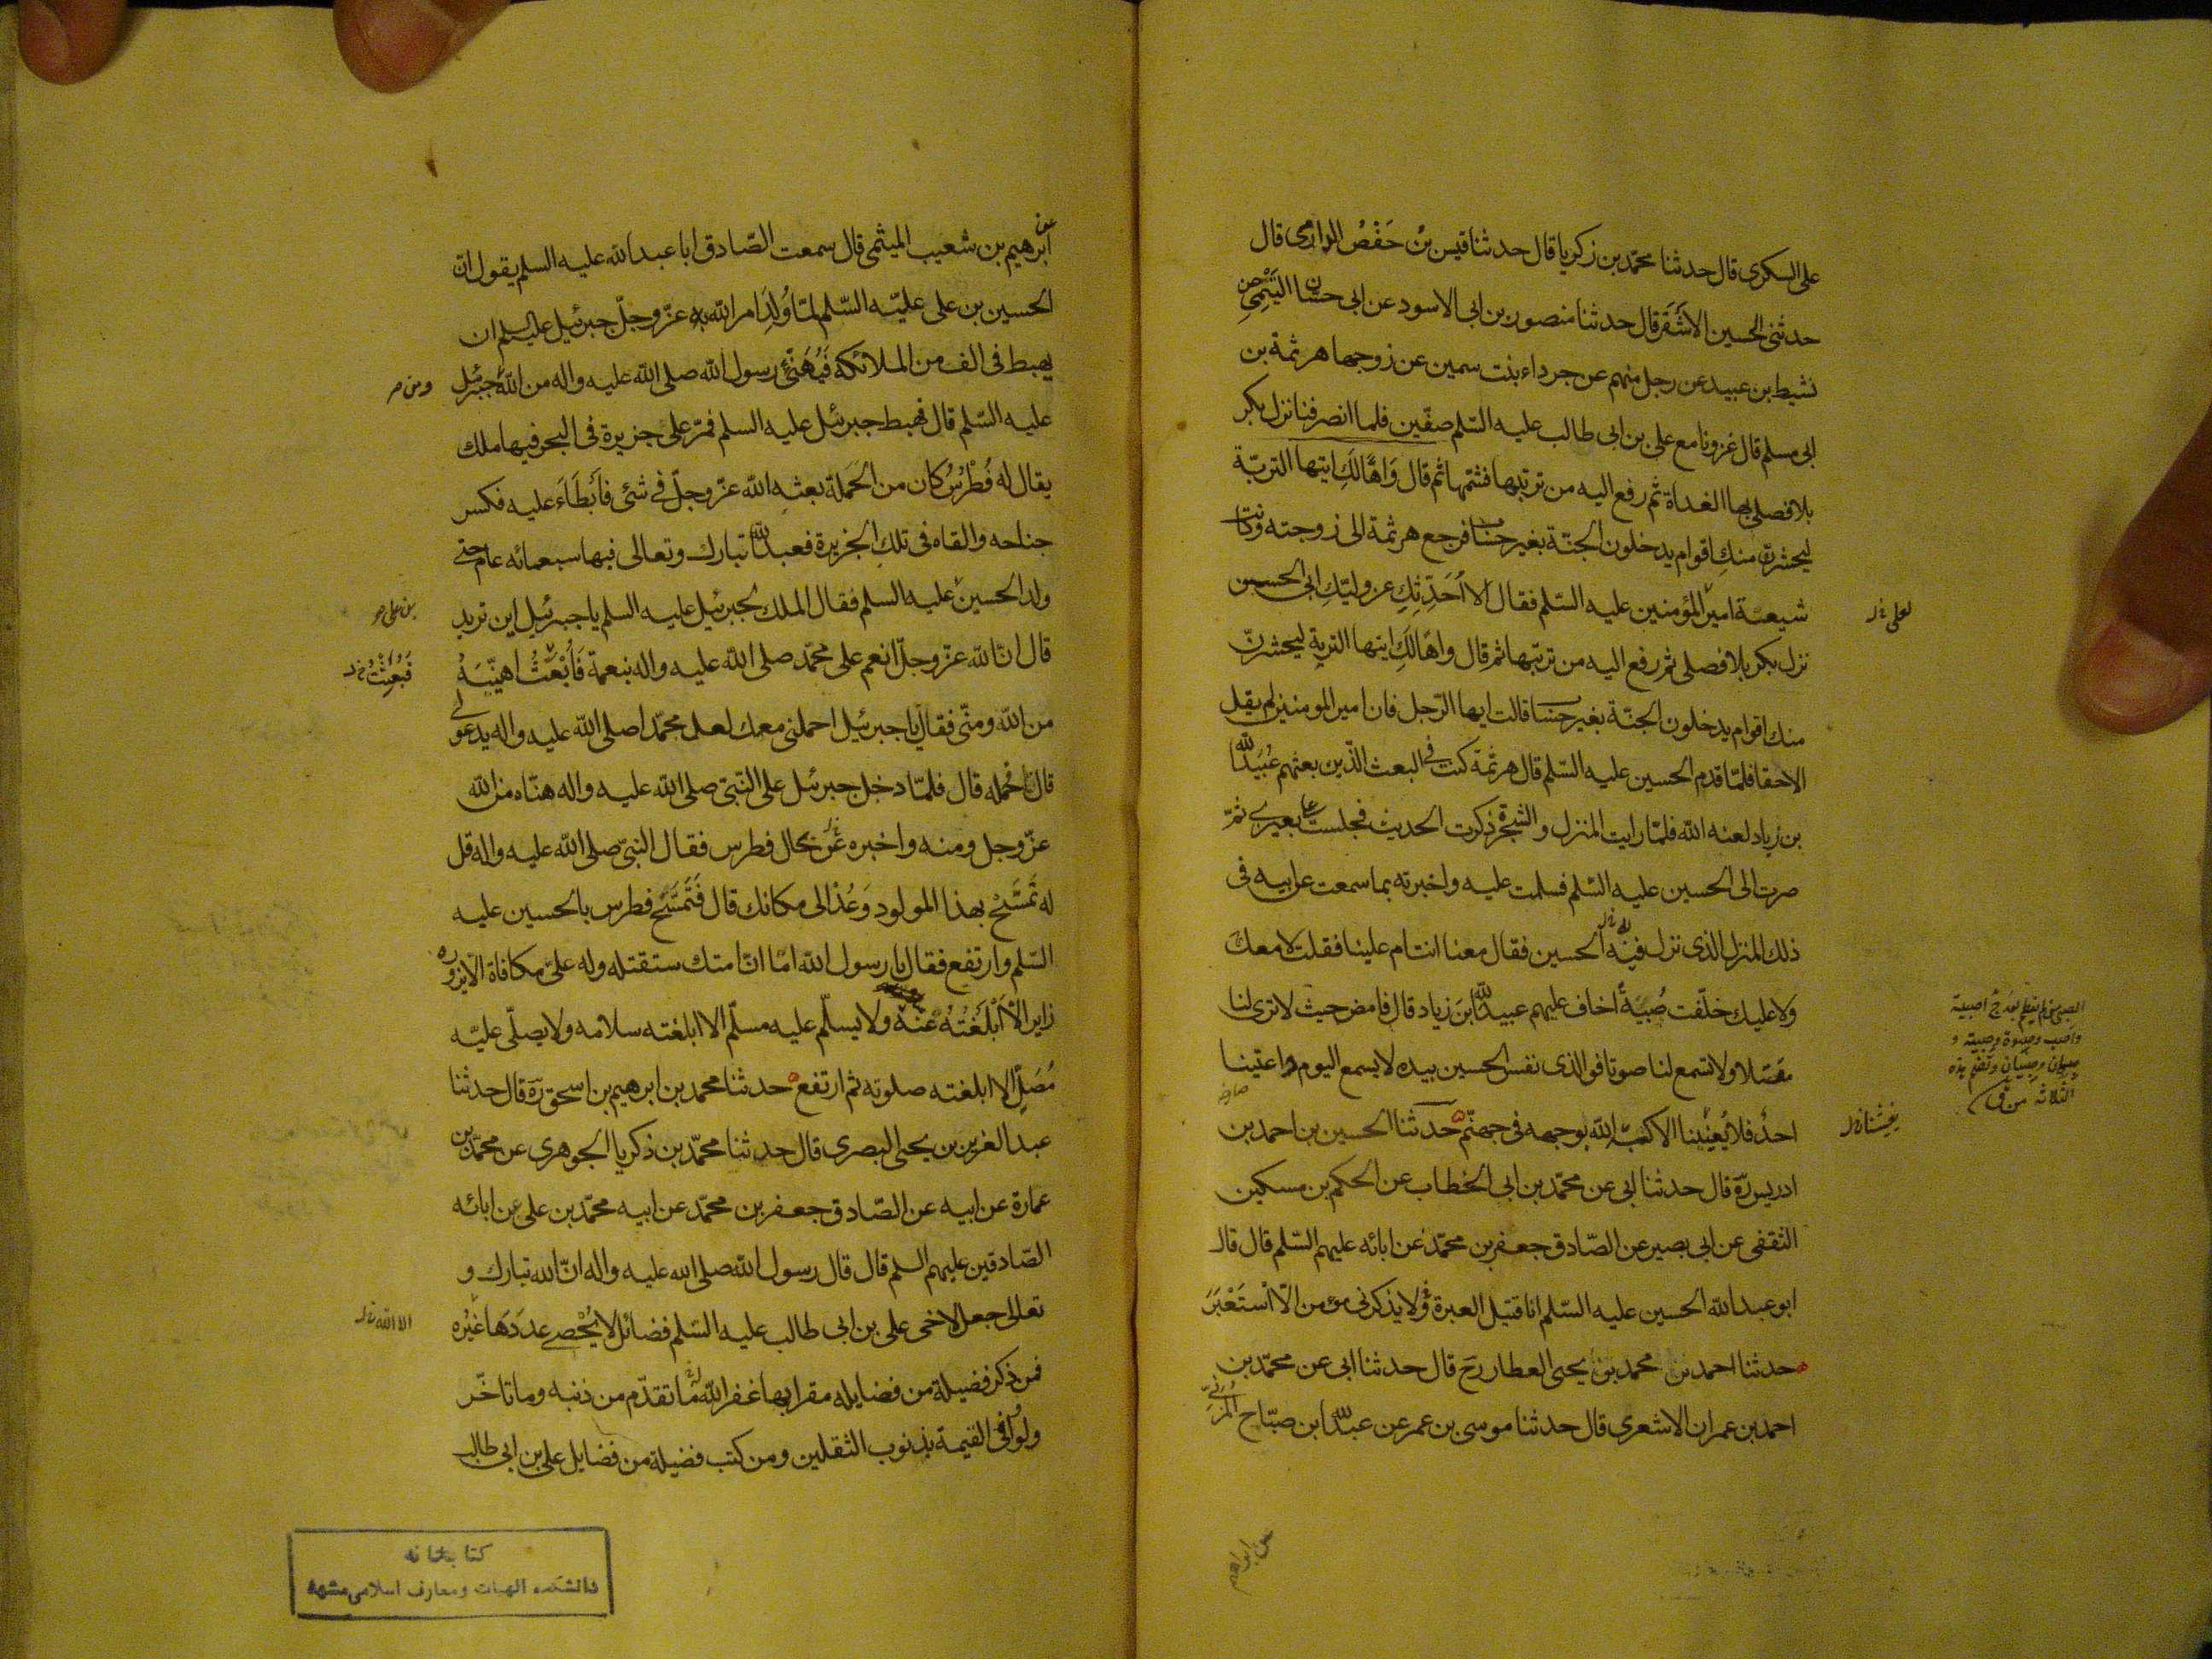 على السكرى قال حدثنا محمّد بن زكريا قال حدثنا قيس بنُ حَفْصُ الدارمى قال
حدثنى الحسين الأشقر قال حدثنا منصور بن ابى الاسود عن ابى حسان التَيْمى عن
نشيط بن عبيد عن رجل منهم عن جرداء بنت سمين عن زوجها هرثمة بن
ابى مسلم قال غزونا مع على بن ابى طالب عليه السّلم صفّين فلما انصرفنا نزل بكر
بلا فصلى بها الغداة ثم رفع اليه من تربتها فشمّها ثم قال وَاهًا لَكِ ايتها التربّة
ليحشرن منكِ اقوام يدخلون الجنّة بغير حسا فرجع هرثمة الى زوجته وكانت
شيعة امير المؤمنين عليه السّلم فقال الا اُحَدِّثكِ عن وليّكِ ابى الحسين
لعلى خ ل
نزل بكر بلا فصلى ثم رفع اليه من تربتها ثم قال واهًا لَكِ ايتها التربة ليحشرنّ
منك اقوام يدخلون الجنّة بغير حسا قالت ايها الرّجل فان امير المومنين لم يقل
الاحقا فلمّا قدم الحسين عليه السّلم قال هرثمة كنت فى البعث الذّين بعثهم عُبَيد الله
بن زياد لعنه الله فلمّا رايت المنزل والشجر ذكرت الحديث فجلست على بعيرى ثمّ
صرت الى الحسين عليه السّلم فسلمت عليه واخبرته بما سمعت عن ابيه فى
ذلك المنزل الذى نزل فيه الحسين فقال معنا انت ام علينا فقلت لا معك
ولا عليك خلّفت صُبْيَةً اخاف عليهم عبيد الله ابن زياد قال فامض حيث لا ترى لنا
مقتلا ولا تسمع لنا صوتا فو الذى نفس الحسين بيده لا يسمع اليوم واعيتنا
احدٌ فلا يُعِينُنا الا كبّه الله بوجهه فى جهنّم حدثنا الحسين بن احمد بن
ادريس ره قال حدثنا ابى عن محمّد بن ابى الخطاب عن الحكم بن مسكين
الثقفى عن ابى بصير عن الصّادق جعفر بن محمّد عن ابائه عليهم السّلم قال قال
ابو عبد الله الحسين عليه السّلم انا قتيل العبرة ولا يذكرنى مؤمن الّا اسْتَعْبَرَ
حدثنا احمد بن محمد بن يحيى العطار رح قال حدثنا ابى عن محمّد بن
احمد بن عمران الاشعرى قال حدثنا موسى بن عمر عن عبد الله ابن صبّاح المزنى
عن ابراهيم
عن
ابرهيم بن شعيب الميثمى قال سمعت الصّادق ابا عبد الله عليه السلم يقول انّ
الحسين بن على عليّه السّلم لمّا وُلِدَ امر الله عزّ وجلّ جبرئيل عليه السلم ان
يهبط فى الف من الملائكة فَيُهَنِّئ رسول الله صلى الله عليه واله من الله جبرئيل
ومن
عليه السّلم قال فهبط جبرئيل عليه السلم فمرّ على جزيرة فى البحر فيها ملك
يقال له فُطْرُسُ كان من الحَملة بعثه الله عزّ وجلّ فى شئ فأبْطَأَ عليه فكسر
جناحه والقاه فى تلك الجزيرة فعبد الله تبارك وتعالى فيها سبعمائه عام حتى
ولد الحسين عليه السلم فقال الملك لجبرئيل عليه السلم يا جبرئيل اين تريد
بن على
قال ان الله عزّ وجلّ انعم على محمّد صلى الله عليه واله بنعمة فَأَبْعَثُ اهنّيَهُ
فَبُعِثْتُ خ ل
من الله ومنّى فقال يا جبرئيل احملنى معك لعل محمّدا صلى الله عليه واله يدعو لى
قال فحمله قال فلمّا دخل جبرئيل على النّبىّ صلى الله عليه واله هنّاه من الله
عزّ وجل ومنه واخبره عن بحال فطرس فقال النبىّ صلى الله عليه واله قل
له تَمَسَّحْ بهذا المولود وَعُدْ الى مكانك قال فَتَمَسَّحَ فطرس بالحسين عليه
السّلم وارتفع فقال يا رسول الله امّا انّ امتك ستقتله وله علىّ مكافاة الّا يزوره
زاير الّا اَبْلَغْتُهُ عَنْهُ ولا يسلّم عليه مسلّم الا ابلغته سلامه ولا يصلّى عليّه
مُصَلٍّ الا ابلغته صلوته ثم ارتفع حدثنا محمد بن ابرهيم بن اسحق ره قال حدثنا
عبد العزيز بن يحيى البصرى قال حدثنا محمّد بن ذكريا الجوهرى عن محمّد بن
عمارة عن ابيه عن الصّادق جعفر بن محمّد عن ابيه محمّد بن على عن ابائه
الصّادقين عليهم السلم قال قال رسول الله صلى الله عليه واله انّ الله تبارك و
تعالى جعل لاخى على بن ابى طالب عليه السّلم فضائل لا يُحْصِى عدَدَهَا غيْرُه
الا الله خ ل
فمن ذكر فضيلة من فضايله مقرا بها غفر الله ما تقدّم من ذنبه وما تاخّر
ولو وافى القيمة بذنوب الثقلين ومن كتب فضيلة من فضايل على بن ابى طالب
كتابخانه
دانشکده الهیات و معارف اسلامی مشهد